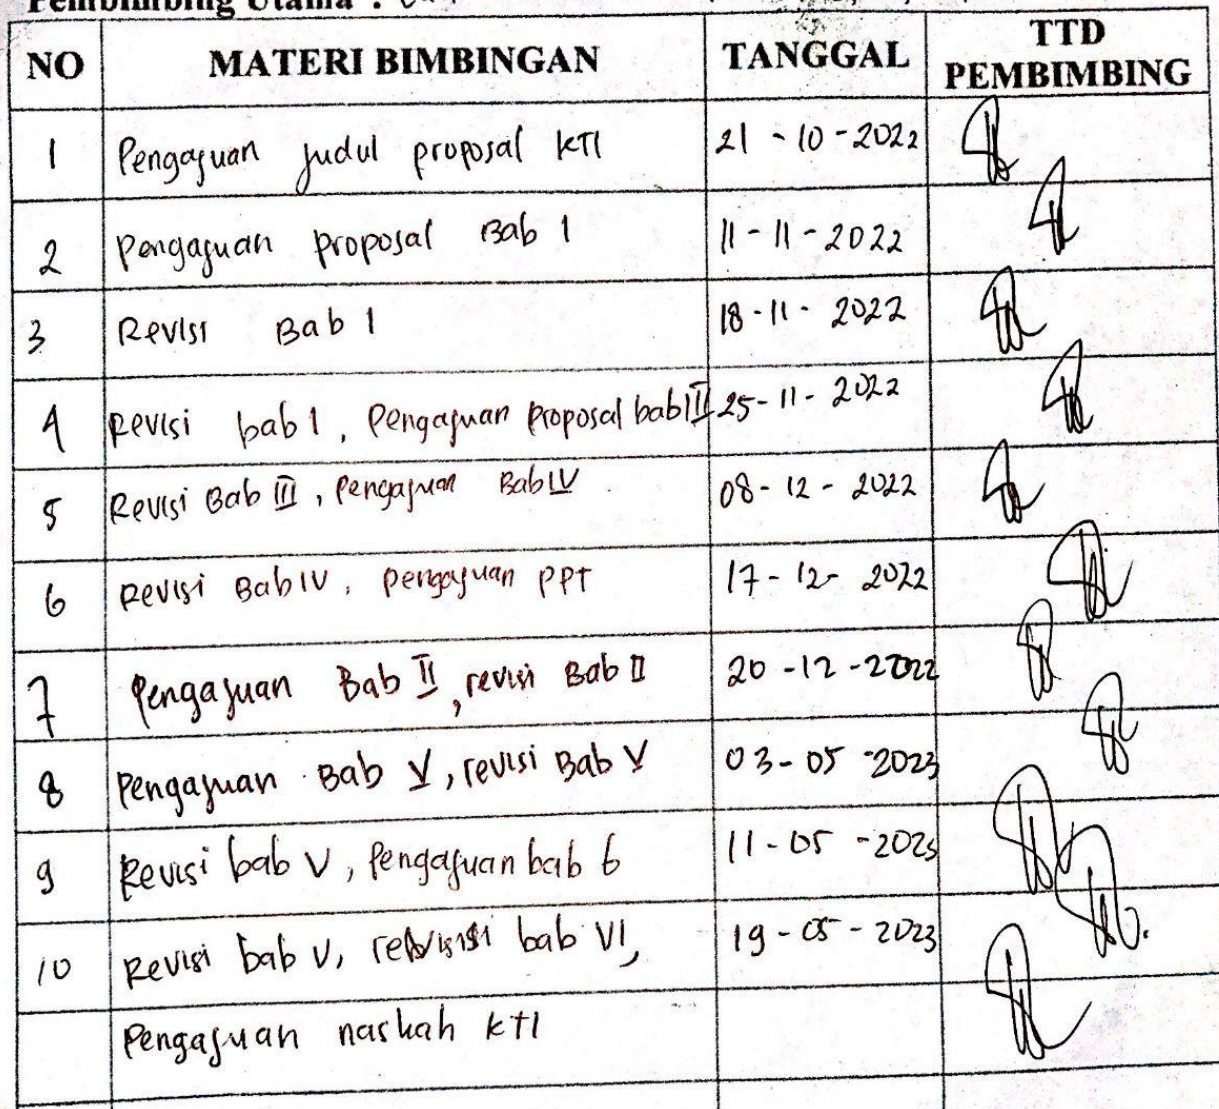 Pembimbing Utama :
NO MATERI BIMBINGAN TANGGAL TTD PEMBIMBING
1 Pengajuan judul proposal KTI 21 - 10 - 2022
2 Pengajuan proposal Bab 1 11 - 11 - 2022
3 Revisi Bab 1 18 - 11 - 2022
4 Revisi bab 1, Pengajuan proposal bab III 25 - 11 - 2022
5 Revisi Bab III, Pengajuan Bab IV 08 - 12 - 2022
6 Revisi Bab IV, pengajuan PPT 17 - 12 - 2022
7 Pengajuan Bab II, revisi Bab II 20 - 12 - 2022
8 Pengajuan Bab V, revisi Bab V 03 - 05 - 2023
9 Revisi bab V, Pengajuan bab 6 11 - 05 - 2023
10 Revisi bab V, revisi bab VI, 19 - 05 - 2023
Pengajuan naskah KTI